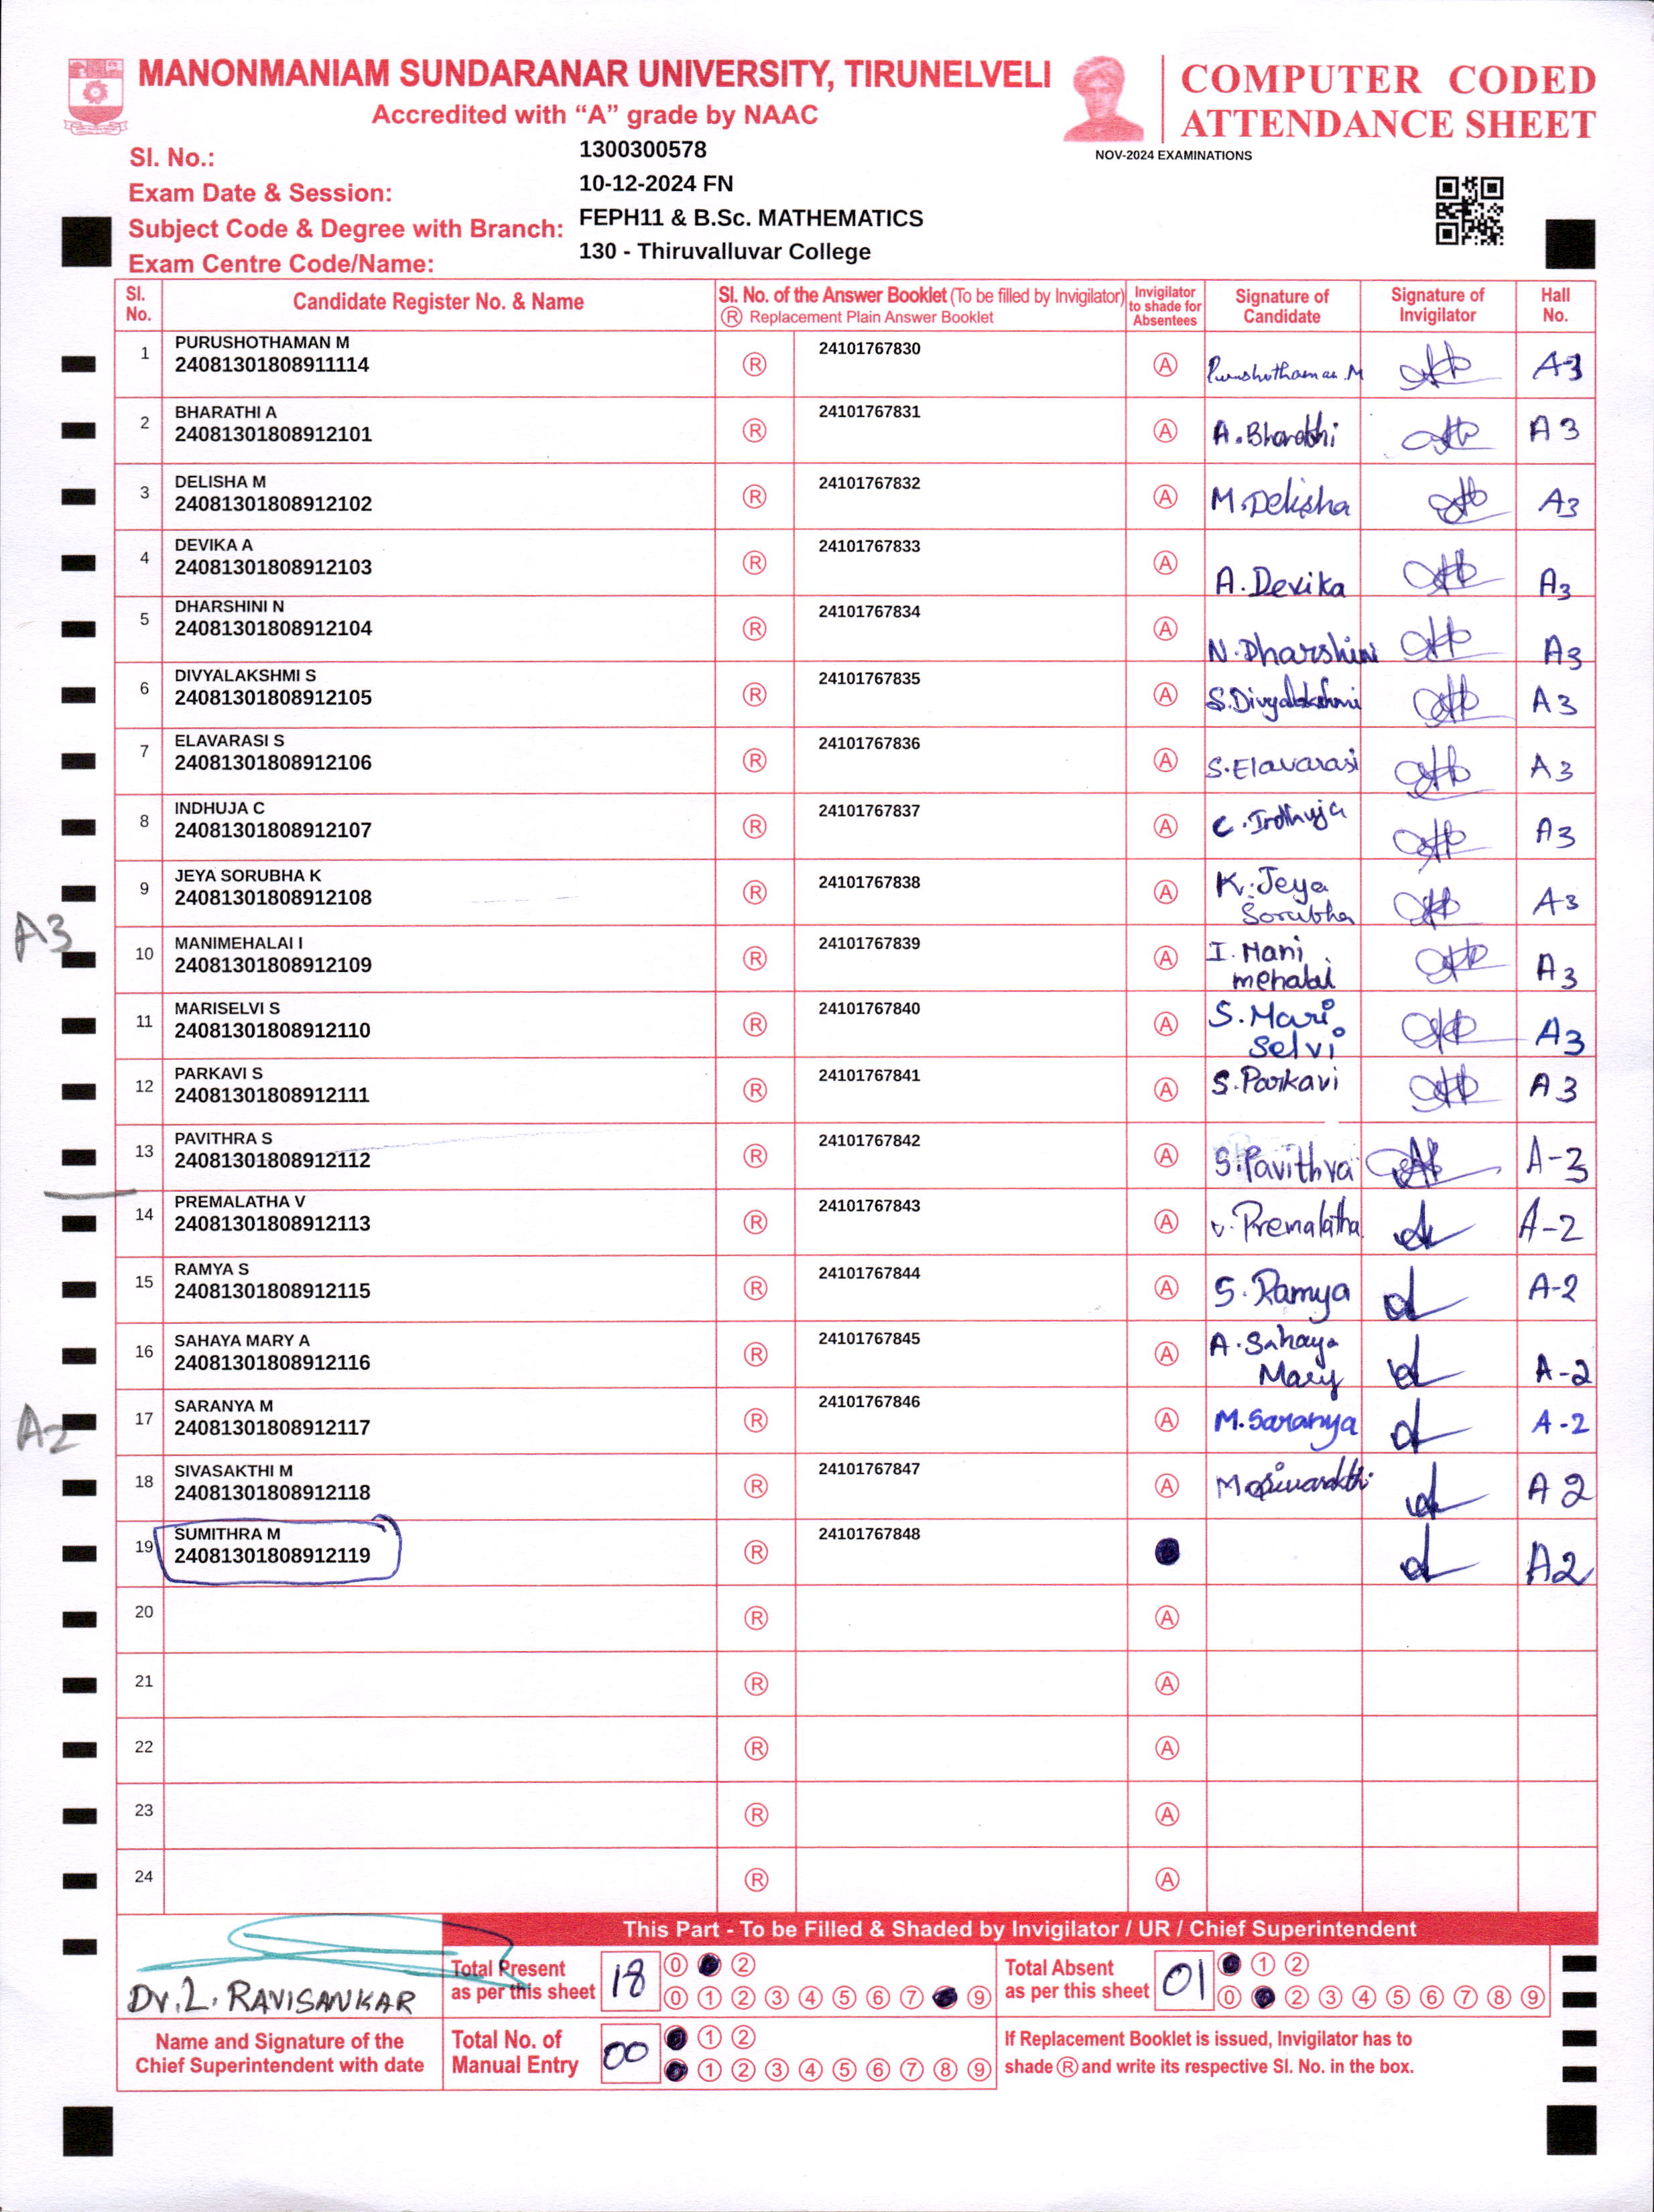 MANONMANIAM SUNDARANAR UNIVERSITY, TIRUNELVELI
Accredited with “A” grade by NAAC
COMPUTER CODED
ATTENDANCE SHEET
NOV-2024 EXAMINATIONS
Sl. No.: 1300300578
Exam Date & Session: 10-12-2024 FN
Subject Code & Degree with Branch: FEPH11 & B.Sc. MATHEMATICS
Exam Centre Code/Name: 130 - Thiruvalluvar College
Sl. No. Candidate Register No. & Name Sl. No. of the Answer Booklet (To be filled by Invigilator) Ⓡ Replacement Plain Answer Booklet Invigilator to shade for Absentees Signature of Candidate Signature of Invigilator Hall No.
1 PURUSHOTHAMAN M Ⓡ 24101767830 Ⓐ Purushothaman.M A3
24081301808911114
2 BHARATHI A Ⓡ 24101767831 Ⓐ A.Bharathi A3
24081301808912101
3 DELISHA M Ⓡ 24101767832 Ⓐ M.Delisha A3
24081301808912102
4 DEVIKA A Ⓡ 24101767833 Ⓐ A.Devika A3
24081301808912103
5 DHARSHINI N Ⓡ 24101767834 Ⓐ N.Dharshini A3
24081301808912104
6 DIVYALAKSHMI S Ⓡ 24101767835 Ⓐ S.Divyalakshmi A3
24081301808912105
7 ELAVARASI S Ⓡ 24101767836 Ⓐ S.Elavarasi A3
24081301808912106
8 INDHUJA C Ⓡ 24101767837 Ⓐ C.Indhuja A3
24081301808912107
9 JEYA SORUBHA K Ⓡ 24101767838 Ⓐ K.Jeya Sorubha A3
24081301808912108
A3
10 MANIMEHALAI I Ⓡ 24101767839 Ⓐ I.Mani mehalai A3
24081301808912109
11 MARISELVI S Ⓡ 24101767840 Ⓐ S.Mari Selvi A3
24081301808912110
12 PARKAVI S Ⓡ 24101767841 Ⓐ S.Parkavi A3
24081301808912111
13 PAVITHRA S Ⓡ 24101767842 Ⓐ S.Pavithra A-3
24081301808912112
14 PREMALATHA V Ⓡ 24101767843 Ⓐ V.Premalatha A-2
24081301808912113
15 RAMYA S Ⓡ 24101767844 Ⓐ S.Ramya A-2
24081301808912115
16 SAHAYA MARY A Ⓡ 24101767845 Ⓐ A.Sahaya Mary A-2
24081301808912116
A2
17 SARANYA M Ⓡ 24101767846 Ⓐ M.Saranya A-2
24081301808912117
18 SIVASAKTHI M Ⓡ 24101767847 Ⓐ M.Sivasakthi A2
24081301808912118
19 SUMITHRA M Ⓡ 24101767848 A2
24081301808912119
20 Ⓡ Ⓐ
21 Ⓡ Ⓐ
22 Ⓡ Ⓐ
23 Ⓡ Ⓐ
24 Ⓡ Ⓐ
This Part - To be Filled & Shaded by Invigilator / UR / Chief Superintendent
Dr.L. RAVISANKAR
Name and Signature of the
Chief Superintendent with date
Total Present as per this sheet 18
0 2
0 1 2 3 4 5 6 7 9
Total Absent as per this sheet 01
1 2
0 2 3 4 5 6 7 8 9
Total No. of Manual Entry 00
1 2
1 2 3 4 5 6 7 8 9
If Replacement Booklet is issued, Invigilator has to
shade Ⓡ and write its respective Sl. No. in the box.